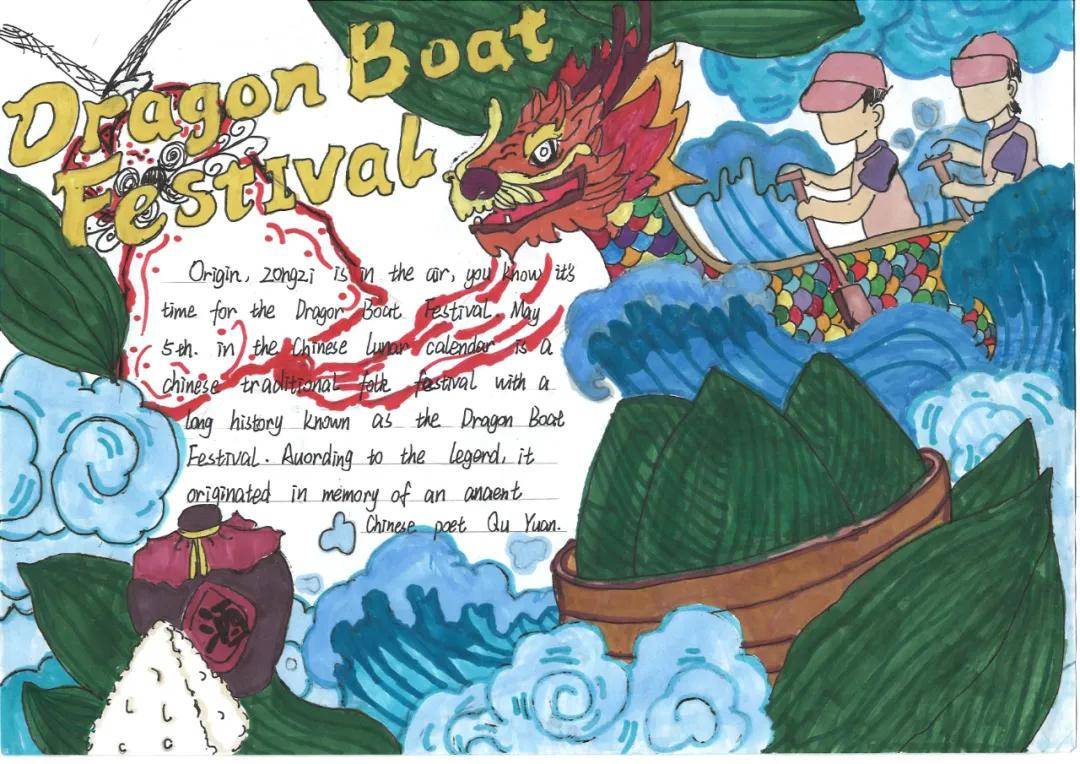 Dragon Boat
Festival
Origin, zongzi is in the air, you know it's
time for the Dragon Boat Festival. May
5th. in the Chinese lunar calendar is a
chinese traditional folk festival with a
long history known as the Dragon Boat
Festival. Auording to the legend, it
originated in memory of an anaent
Chinese poet Qu Yuan.
酒